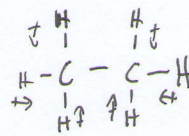 H H
H - C - C - H
H H